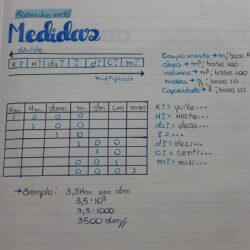 Relembrando
Medidas
divide
K? H? da? ? d? C? m?
multiplica
Comprimento → m; base 10
área → m²; base 100
volume → m³; base 1000
massa → g; base 10
Capacidade → l; base 10
Km Hm dam m dm cm mm
1 0 0 0
1 0 0
1 0
1 0
1 0 0
1 0 0 0
K? = quilo...
H? = hecto...
da? = deca...
? = ...
d? = deci...
C? = centi...
m? = mili...
→ Exemplo: 3,5Hm em dm
3,5·10³
3,5·1000
3500 dm//